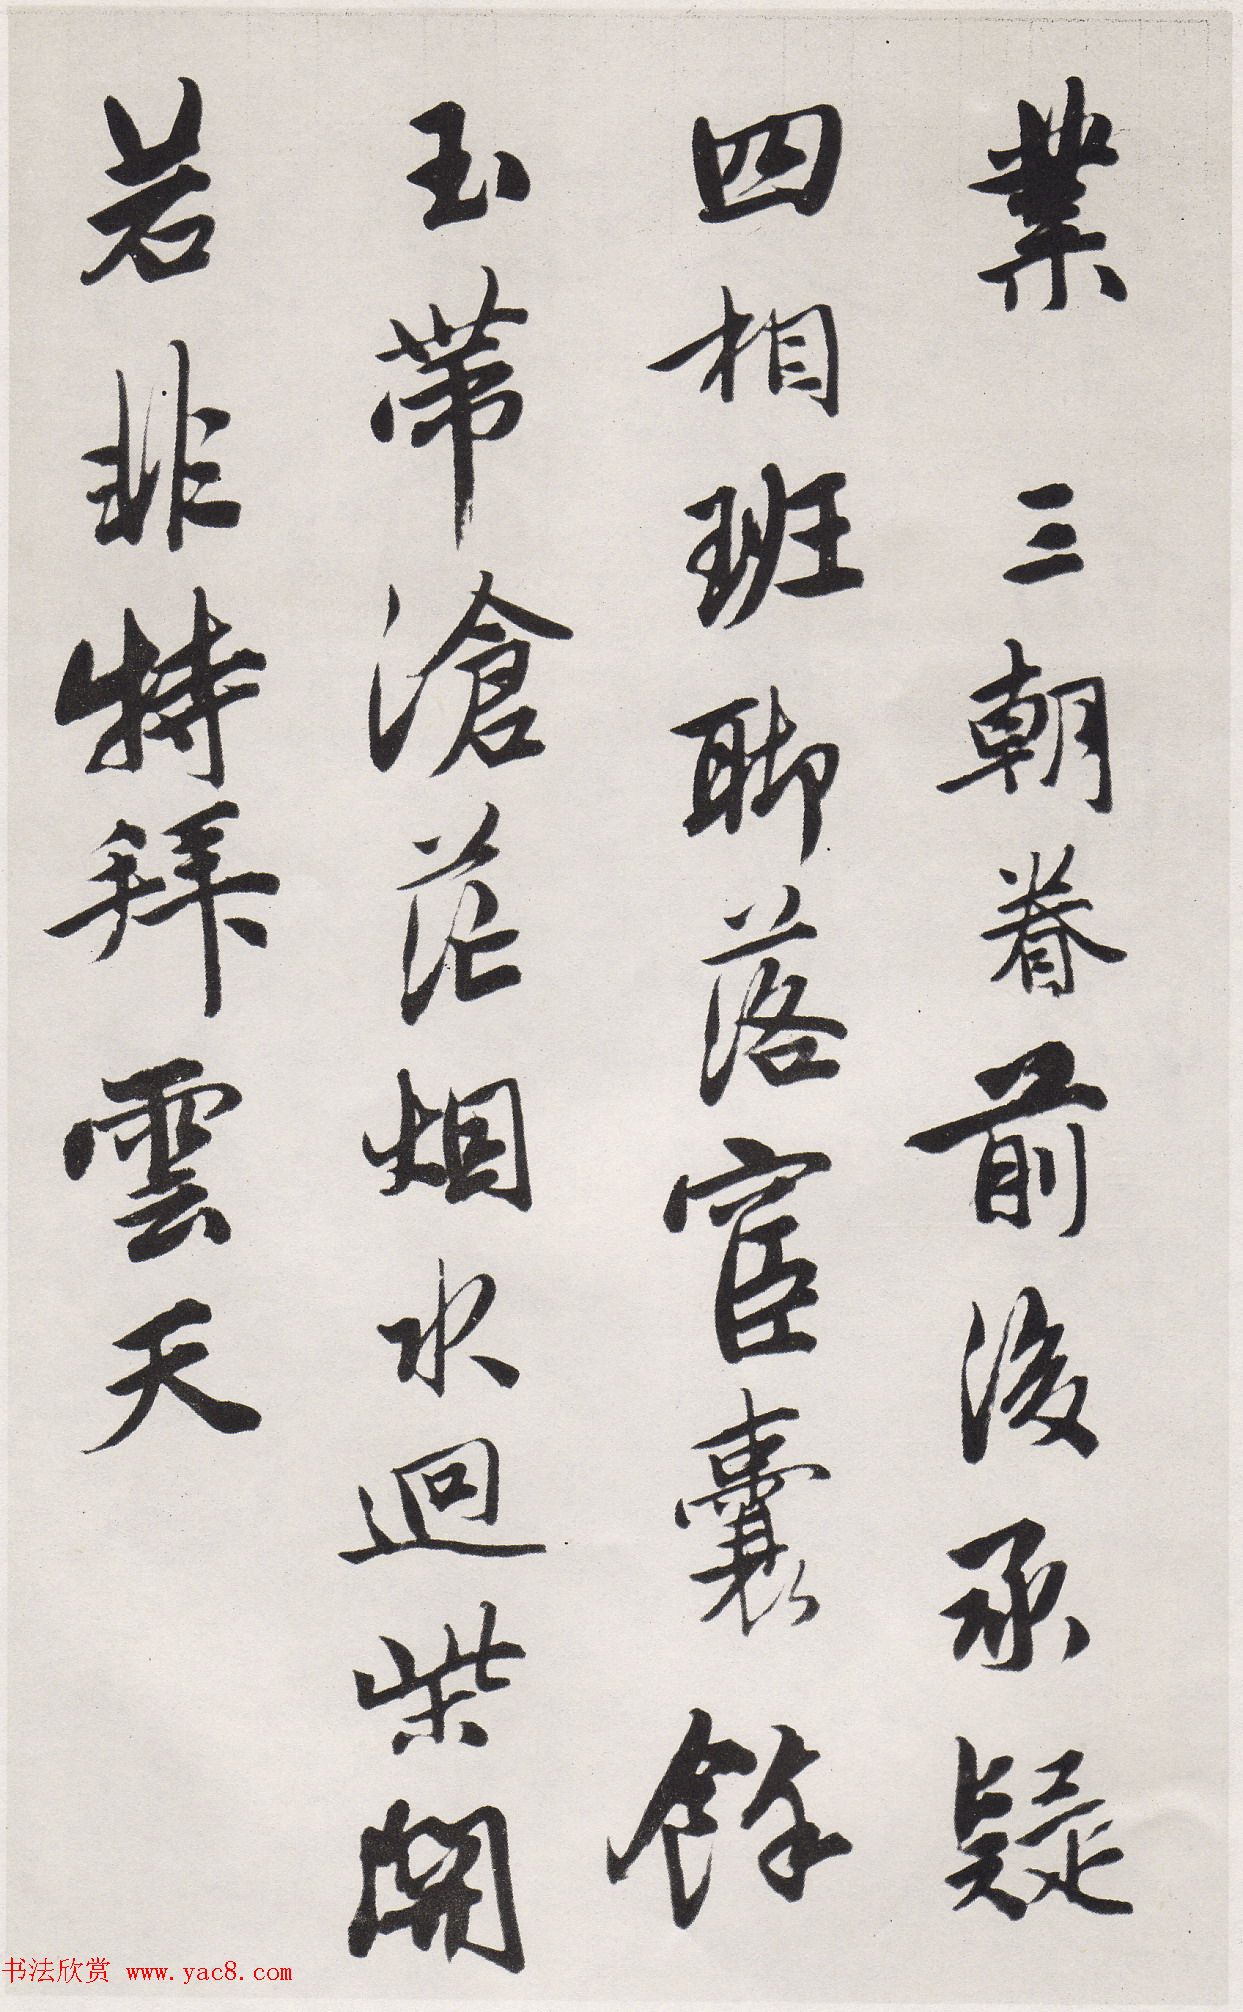 業 三朝眷前後承疑
四相班聊落宦囊餘
玉帶滄茫烟水迴柴開
若非特拜雲天
书法欣赏 www.yac8.com